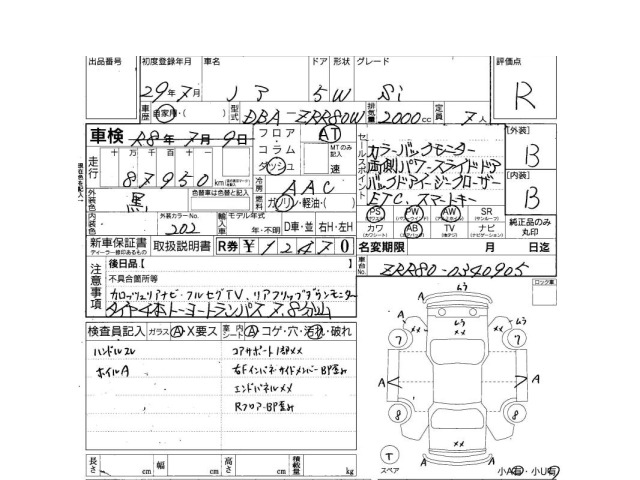 出品番号 初度登録年月 車名 ドア 形状 グレード 評価点
29年7月 ノア 5 W Si R
車歴 自家用・( ) 型式 DBA-ZRR80W 排気量 2000cc 定員 7人
車検 R8年7月9日 フロア AT セールスポイント カラーバックモニター [外装]
走行 十万千百十一 コラム MTのみ記入 両側パワースライドドア B
87950km ダッシュ 速 バックドアイージークローザー [内装]
外装色 黒 色替車は色替と記入 冷房 AAC ETC、スマートキー B
燃料 ガソリン・軽油・( ) PS PW AW SR
内装色 外装カラーNo. 202 輸入車 モデル年式 年・不明 D車・並 右H・左H カワ AB TV ナビ 純正品のみ丸印
新車保証書 取扱説明書 R券 ¥12470 名変期限 月 日迄
ディーラー様印あるもの
注意事項 後日品[ ] 車台No. ZRR80-0340905
不具合箇所等
カロッツェリアナビ・フルセグTV、リアフリップダウンモニター
タイヤ4本トーヨートランパス 7.8分山
検査員記入 ガラス A X要ス 室内シート A コゲ・穴・汚れ・破れ
ハンドルスレ コアサポート1部××
ホイルA 右Fインパネ・サイドメンバーBP歪み
エンドパネル××
Rフロア・BP歪み
ロック車
A A
7 7
A A
8 8
×× ××
T
スペア
A A
小A有・小U有
長さ cm 幅 cm 高さ cm 積載量 kg